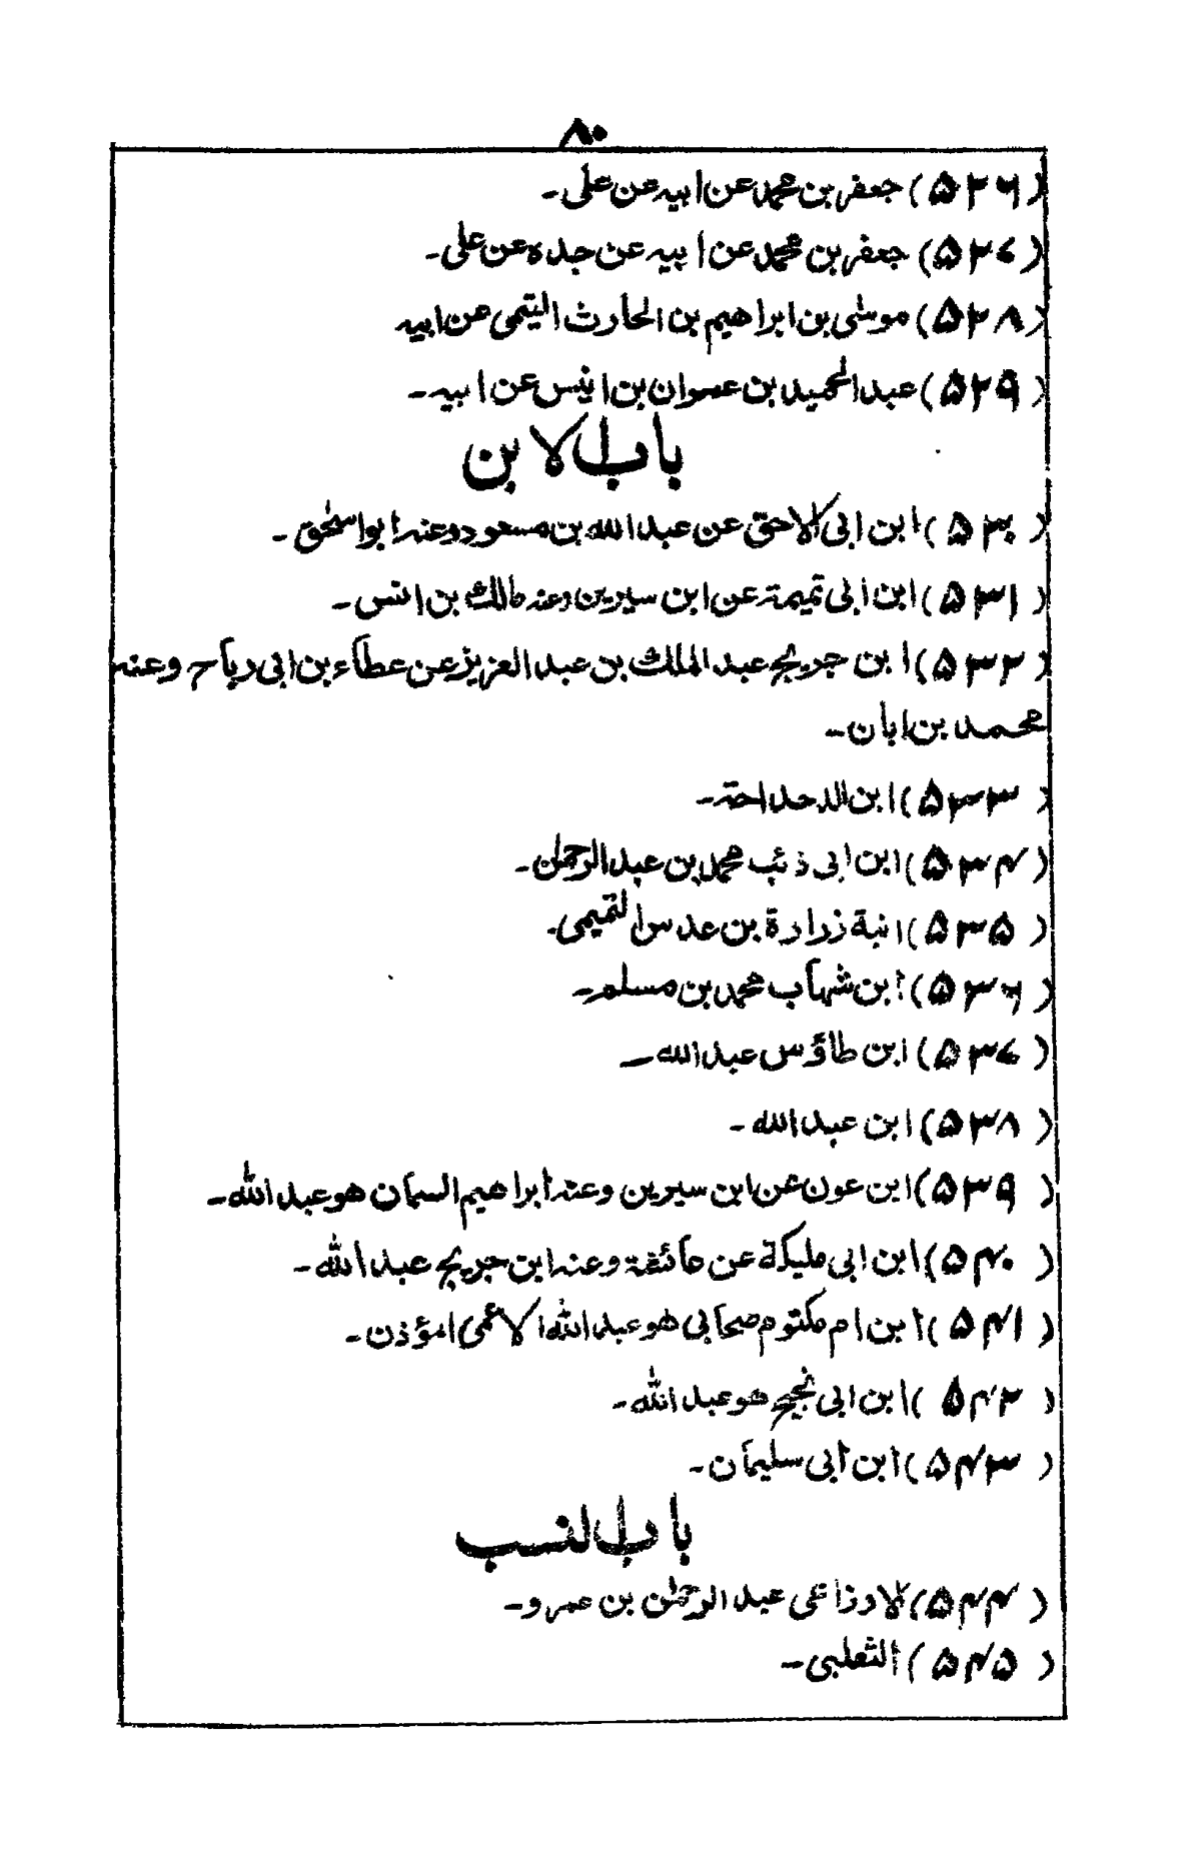 ۸۰
(۵۲۶) جعفر بن محمد عن ابیہ عن علی۔
(۵۲۷) جعفر بن محمد عن ابیہ عن جدہ عن علی۔
(۵۲۸) موسٰی بن ابراھیم بن الحارث التیمی عن ابیہ
(۵۲۹) عبد الحمید بن عمران بن انیس عن ابیہ۔
باب الابن
(۵۳۰) ابن ابی الاحق عن عبد اللہ بن مسعود وعنہ ابواسحٰق۔
(۵۳۱) ابن ابی تمیمۃ عن ابن سیرین وعنہ مالک بن انس۔
(۵۳۲) ابن جریج عبد الملک بن عبد العزیز عن عطاء بن ابی رباح وعنہ
محمد بن ابان۔
(۵۳۳) ابن الدحداحۃ۔
(۵۳۴) ابن ابی ذئب محمد بن عبد الرحمٰن۔
(۵۳۵) انبۃ زرارۃ بن عدس التمیمی۔
(۵۳۶) ابن شہاب محمد بن مسلم۔
(۵۳۷) ابن طاؤس عبد اللہ۔
(۵۳۸) ابن عبد اللہ۔
(۵۳۹) ابن عون عن ابن سیرین وعنہ ابراھیم السمان ھو عبد اللہ۔
(۵۴۰) ابن ابی ملیکۃ عن عائشۃ وعنہ ابن جریج عبد اللہ۔
(۵۴۱) ابن ام مکتوم صحابی ھو عبد اللہ الاعمی المؤذن۔
(۵۴۲) ابن ابی نجیح ھو عبد اللہ۔
(۵۴۳) ابن ابی سلیمان۔
باب النسب
(۵۴۴) الاوزاعی عبد الرحمٰن بن عمرو۔
(۵۴۵) الثعلبی۔